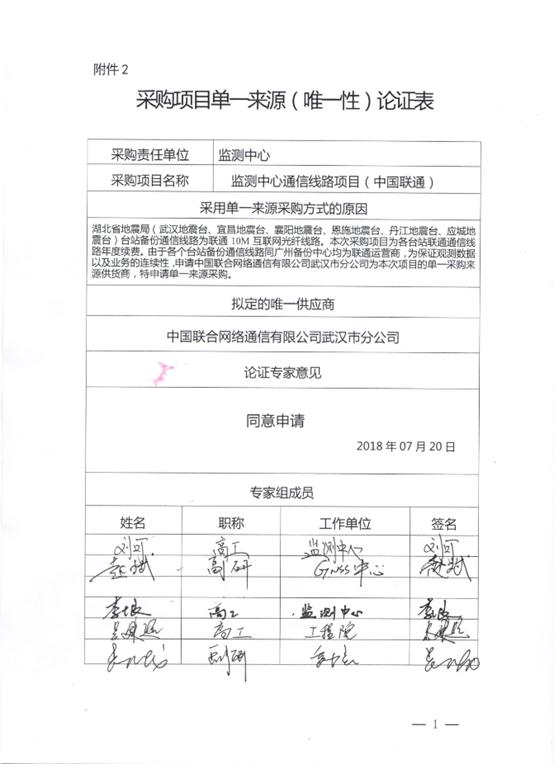 附件2
采购项目单一来源（唯一性）论证表
采购责任单位 监测中心
采购项目名称 监测中心通信线路项目（中国联通）
采用单一来源采购方式的原因
湖北省地震局（武汉地震台、宜昌地震台、襄阳地震台、恩施地震台、丹江地震台、应城地
震台）台站备份通信线路为联通 10M 互联网光纤线路。本次采购项目为各台站联通通信线
路年度续费。由于各个台站备份通信线路同广州备份中心均为联通运营商，为保证观测数据
以及业务的连续性，申请中国联合网络通信有限公司武汉市分公司为本次项目的单一采购来
源供货商，特申请单一来源采购。
拟定的唯一供应商
中国联合网络通信有限公司武汉市分公司
论证专家意见
同意申请
2018 年 07 月 20 日
专家组成员
姓名 职称 工作单位 签名
刘可 高工 监测中心 刘可
高研 GNSS中心
高工 监测中心
高工 工程院
副研
— 1 —